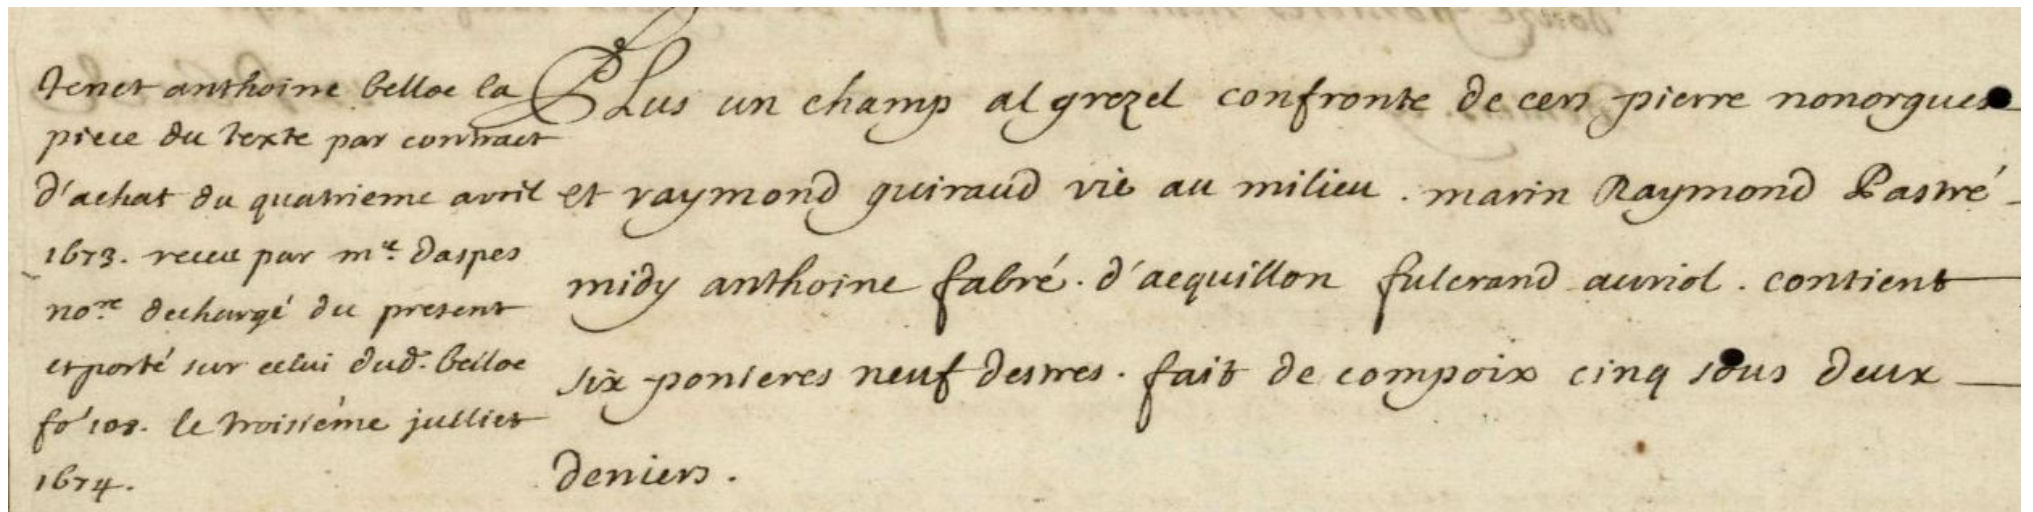 tenet anthoine belloc la
piece du texte par contract
d'achat du quatrieme avril
1673. receu par mᵉ. daspes
noʳᵉ dechargé du present
et porté sur celui dud. belloc
fo 108. le troisiéme julliet
1674.
PLus un champ al grezel confronte de cers pierre nonorgues
et raymond guiraud vie au milieu . marin Raymond Pastré
midy anthoine fabré . d'acquillon fulcrand auriol . contient
six ponieres neuf destres . fait de compoix cinq sous deux
deniers .